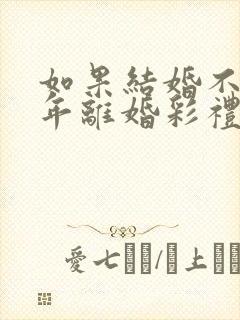 如果結婚不
年離婚彩禮
愛七/上